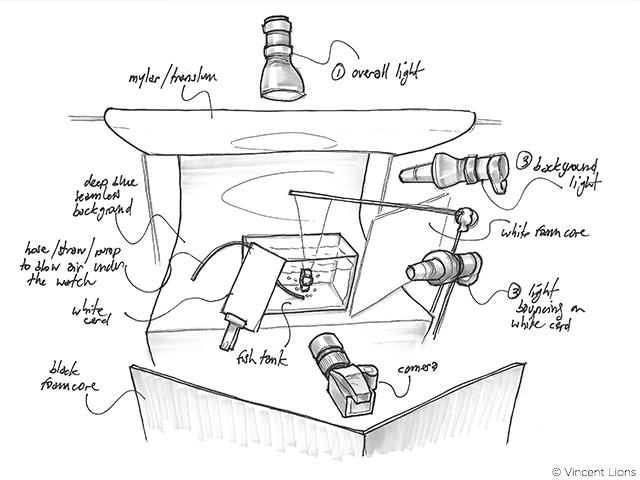 ① overall light
mylar/translum
③ background
light
deep blue
seamless
background
white foamcore
hose/straw/pump
to blow air under
the watch
② light
bouncing on
white card
white
card
fish tank
camera
black
foamcore
© Vincent Lions